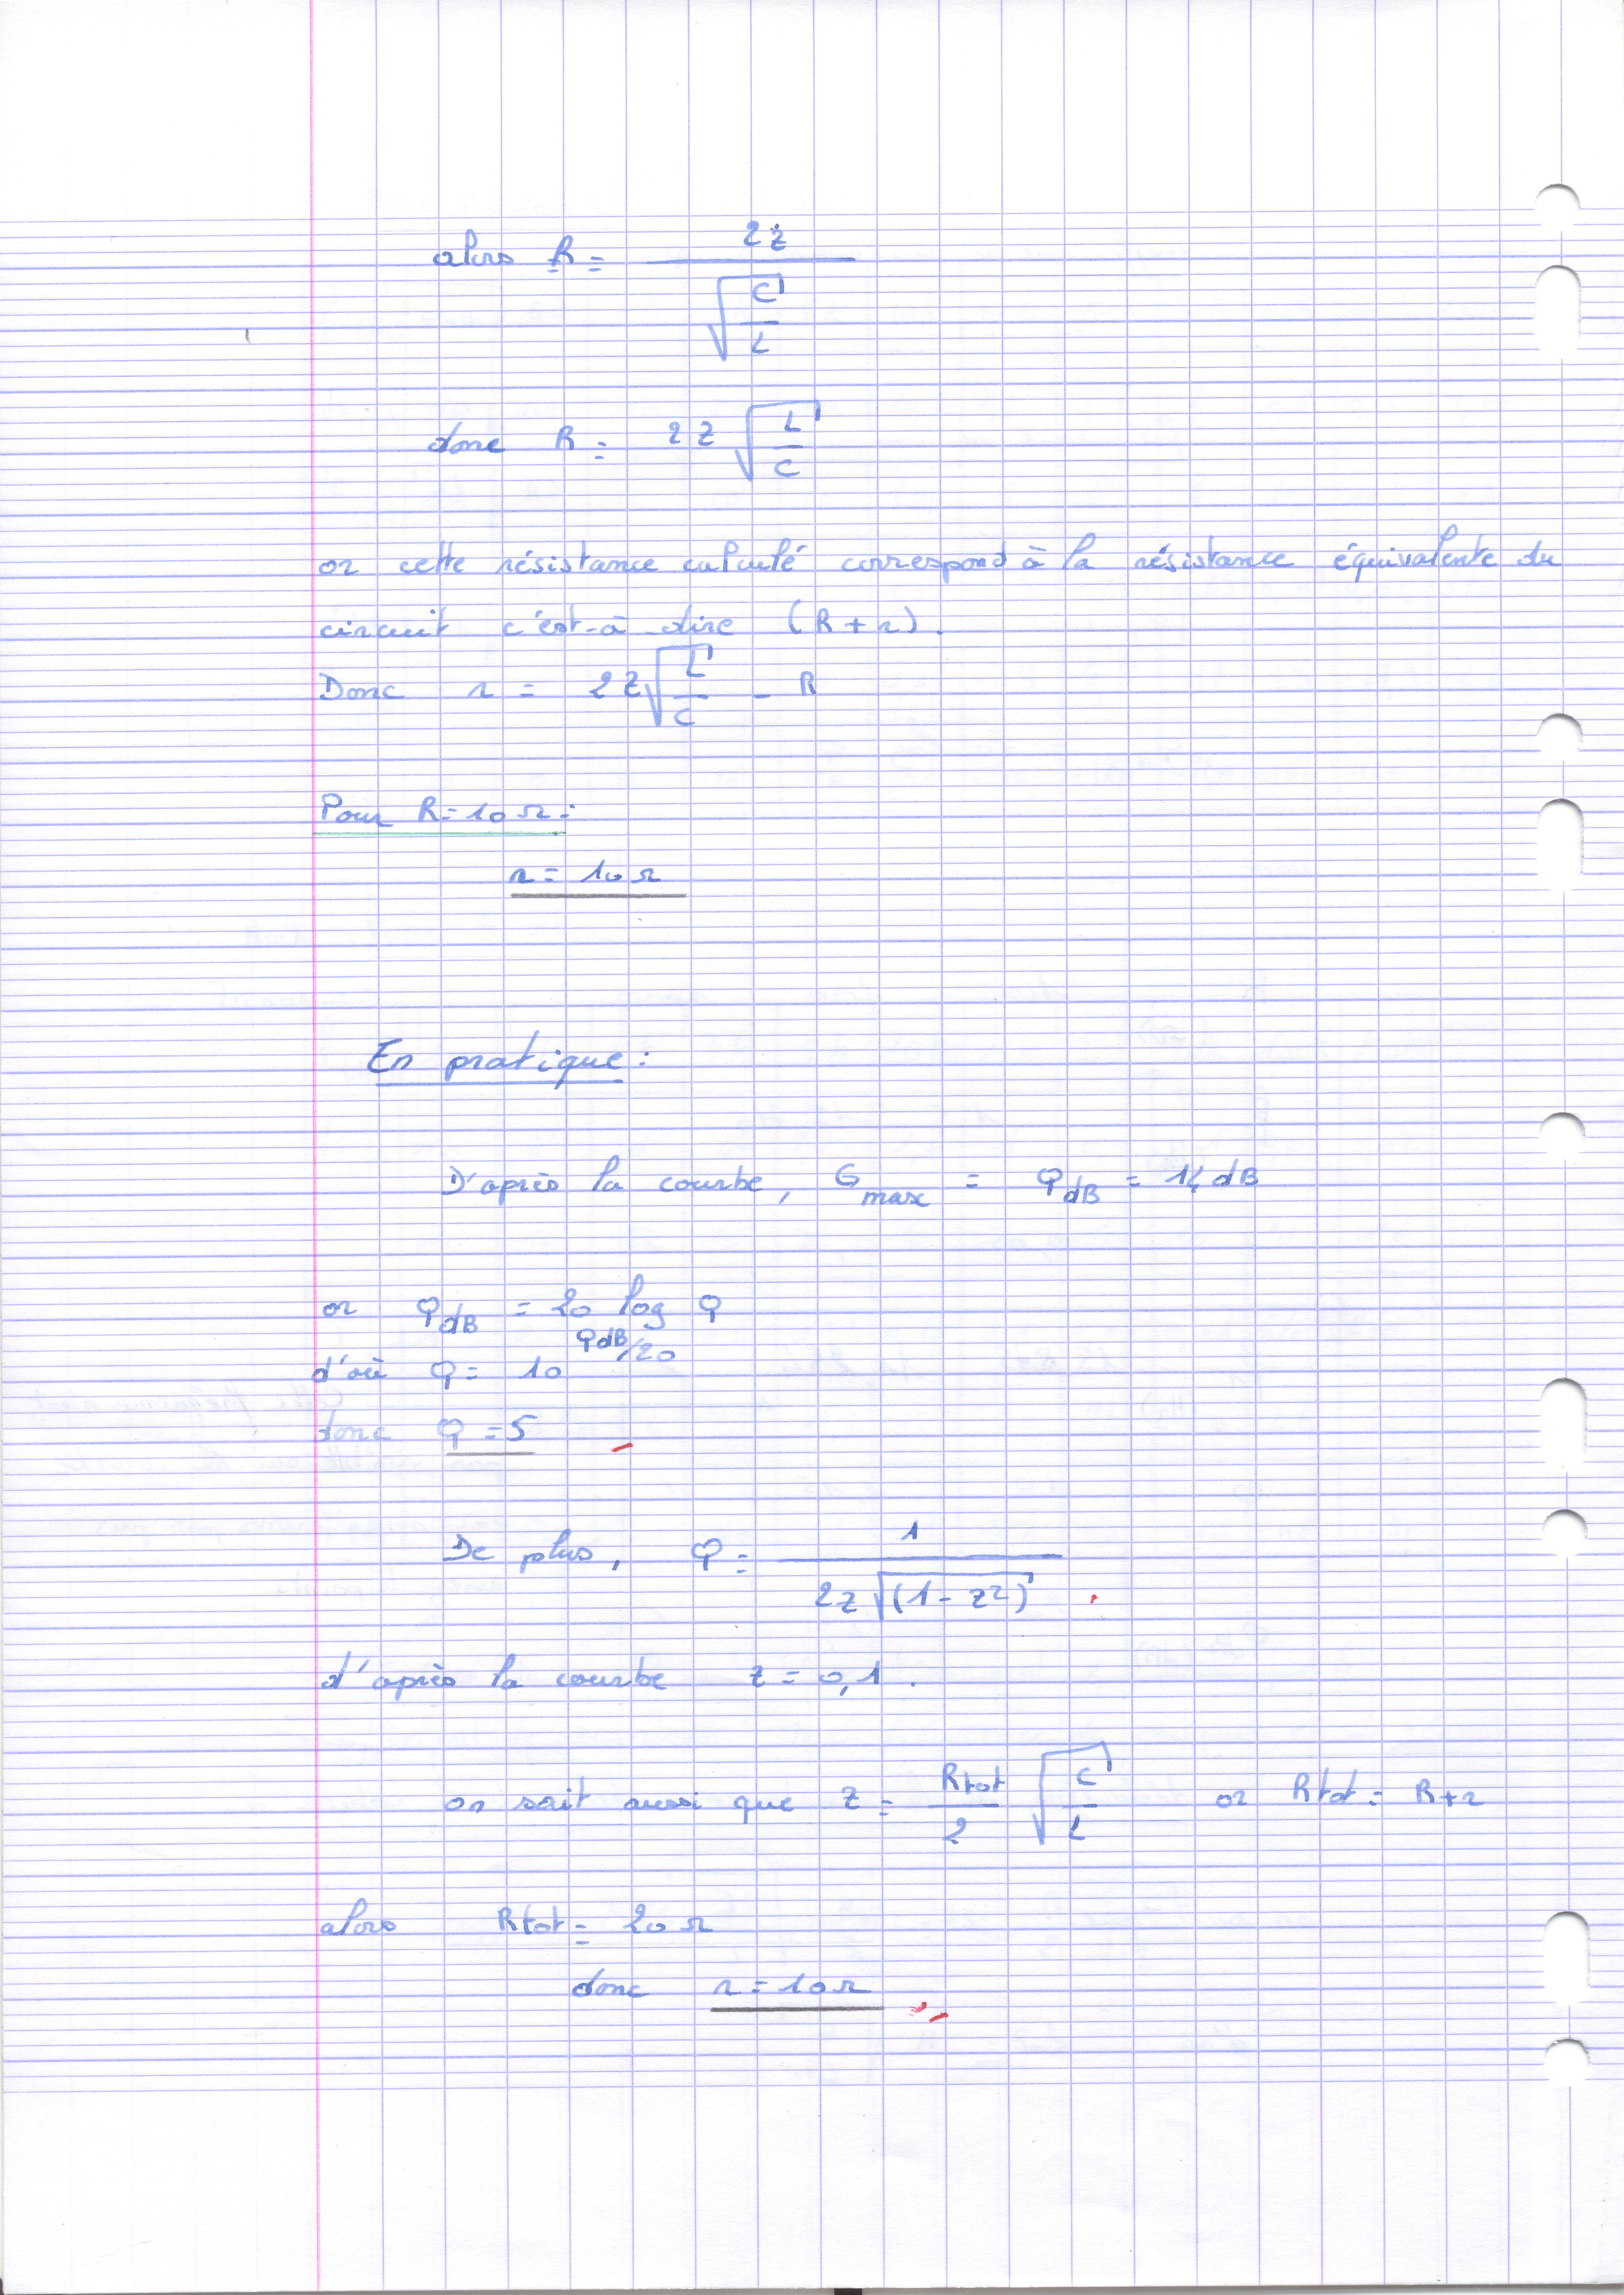 alors R = 2z / √(C/L)
donc R = 2z √(L/C)
or cette résistance calculé correspond à la résistance équivalente du
circuit c'est-à-dire (R+r).
Donc r = 2z √(L/C) - R
Pour R=10Ω:
r = 10Ω
En pratique:
D'après la courbe, Gmax = QdB = 14 dB
or QdB = 20 log Q
d'où Q = 10^(QdB/20)
donc Q = 5
De plus, Q = 1 / (2z √(1-z²))
d'après la courbe z = 0,1.
on sait aussi que z = Rtot/2 √(C/L) or Rtot = R+r
alors Rtot = 20Ω
donc r = 10Ω